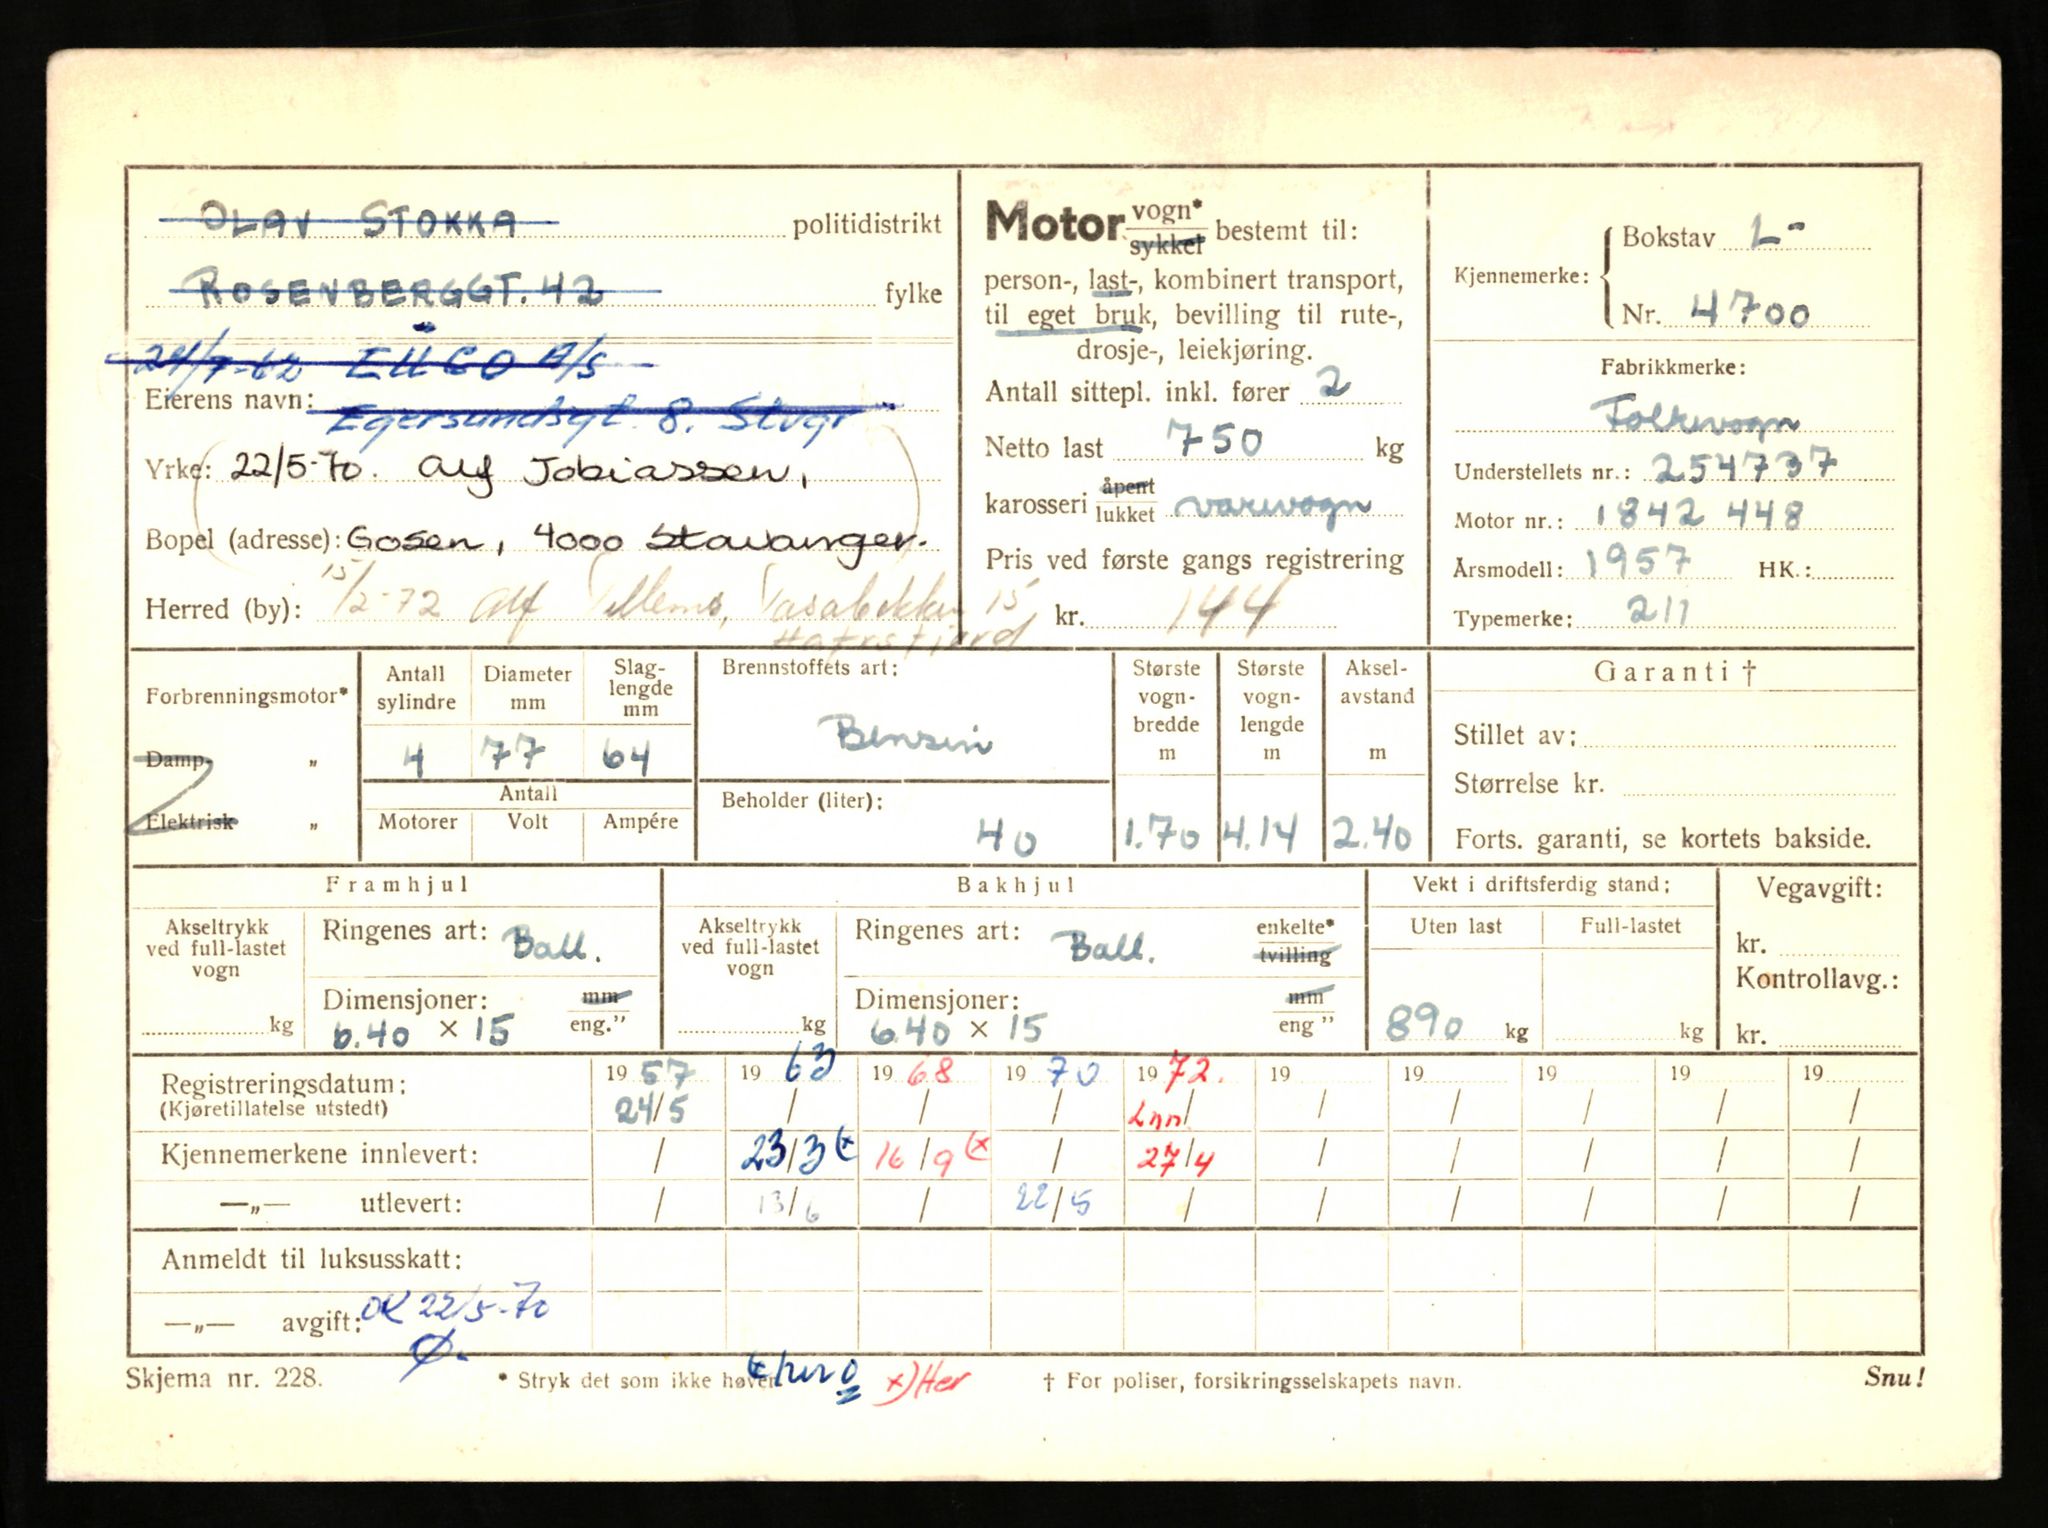 OLAV STOKKA politidistrikt
ROSENBERGGT. 42 fylke
24/7-62 A/S
Eierens navn: Egersundsgt. 8. Stvgr
Yrke: 22/5-70. Alf Tobiassen,
Bopel (adresse): Gosen, 4000 Stavanger.
Herred (by): 15/2-72 Alf Tellems, 15
Hafrsfjord
Motor vogn* sykkel bestemt til:
person-, last-, kombinert transport,
til eget bruk, bevilling til rute-,
drosje-, leiekjøring.
Antall sittepl. inkl. fører 2
Netto last 750 kg
karosseri åpent lukket varevogn
Pris ved første gangs registrering
kr. 144
Kjennemerke: Bokstav L-
Nr. 4700
Fabrikkmerke:
Folkevogn
Understellets nr.: 254737
Motor nr.: 1842 448
Årsmodell: 1957 HK.:
Typemerke: 211
Forbrenningsmotor*
Damp- „
Elektrisk „
Antall sylindre Diameter mm Slag-lengde mm
4 77 64
Antall
Motorer Volt Ampére
Brennstoffets art:
Bensin
Beholder (liter):
40
Største vogn-bredde m Største vogn-lengde m Aksel-avstand m
1.70 4.14 2.40
Garanti †
Stillet av:
Størrelse kr.
Forts. garanti, se kortets bakside.
Framhjul
Akseltrykk ved full-lastet vogn
kg
Ringenes art: Ball.
Dimensjoner: mm
6.40 × 15 eng.”
Bakhjul
Akseltrykk ved full-lastet vogn
kg
Ringenes art: Ball. enkelte* tvilling
Dimensjoner: mm
6.40 × 15 eng ”
Vekt i driftsferdig stand:
Uten last Full-lastet
890 kg kg
Vegavgift:
kr.
Kontrollavg.:
kr.
Registreringsdatum: 19 57 19 63 19 68 19 70 19 72. 19 19 19 19 19
(Kjøretillatelse utstedt) 24/5 / / / Lnn/ / / / / /
Kjennemerkene innlevert: / 23/3 (x 16/9 (x / 27/4 / / / / /
—„— utlevert: / 13/6 / 22/5 / / / / / /
Anmeldt til luksusskatt:
—„— avgift: OK 22/5-70
Ø.
Skjema nr. 228. * Stryk det som ikke høver x) Her † For poliser, forsikringsselskapets navn. Snu!